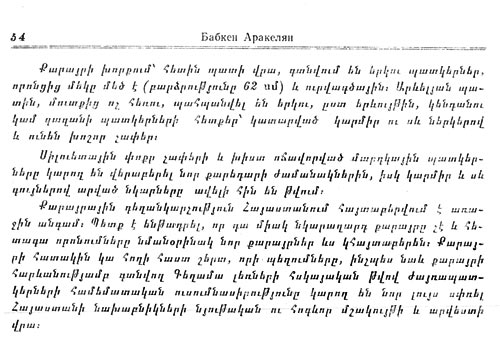 54
Бабкен Аракелян
Քարայրի խորքում՝ հետին պատի վրա, գտնվում են երկու պատկերներ,
որոնցից մեկը մեծ է (բարձրությունը 62 սմ) և ուրվագծային: Արևելյան պա-
տին, մուտքից ոչ հեռու, պահպանվել են երկու, ըստ երևույթին, կենդանու
կամ գազանի պատկերների հետքեր՝ կատարված կարմիր ու սև ներկերով
և ունեն խոշոր չափեր:
Սիլուետային փոքր չափերի և խիստ ոճավորված մարդկային պատկեր-
ները կարող են վերաբերել նոր քարեդարի ժամանակներին, իսկ կարմիր և սև
գույներով արված նկարները ավելի հին են թվում:
Քարայրային գեղանկարչություն Հայաստանում հայտնաբերվում է առա-
ջին անգամ: Պետք է ենթադրել, որ դա միակ նկարազարդ քարայրը չէ և հե-
տագա որոնումները նմանօրինակ նոր քարայրներ ևս կհայտաբերեն: Քարայ-
րի հատակին կա հողի հաստ շերտ, որի պեղումները, ինչպես նաև քարայրի
հարևանությամբ գտնվող Գեղամա լեռների հսկայական թվով ժայռապատ-
կերների համեմատական ուսումնասիրությունը կարող են նոր լույս սփռել
Հայաստանի նախաբնիկների նյութական ու հոգևոր մշակույթի և արվեստի
վրա: